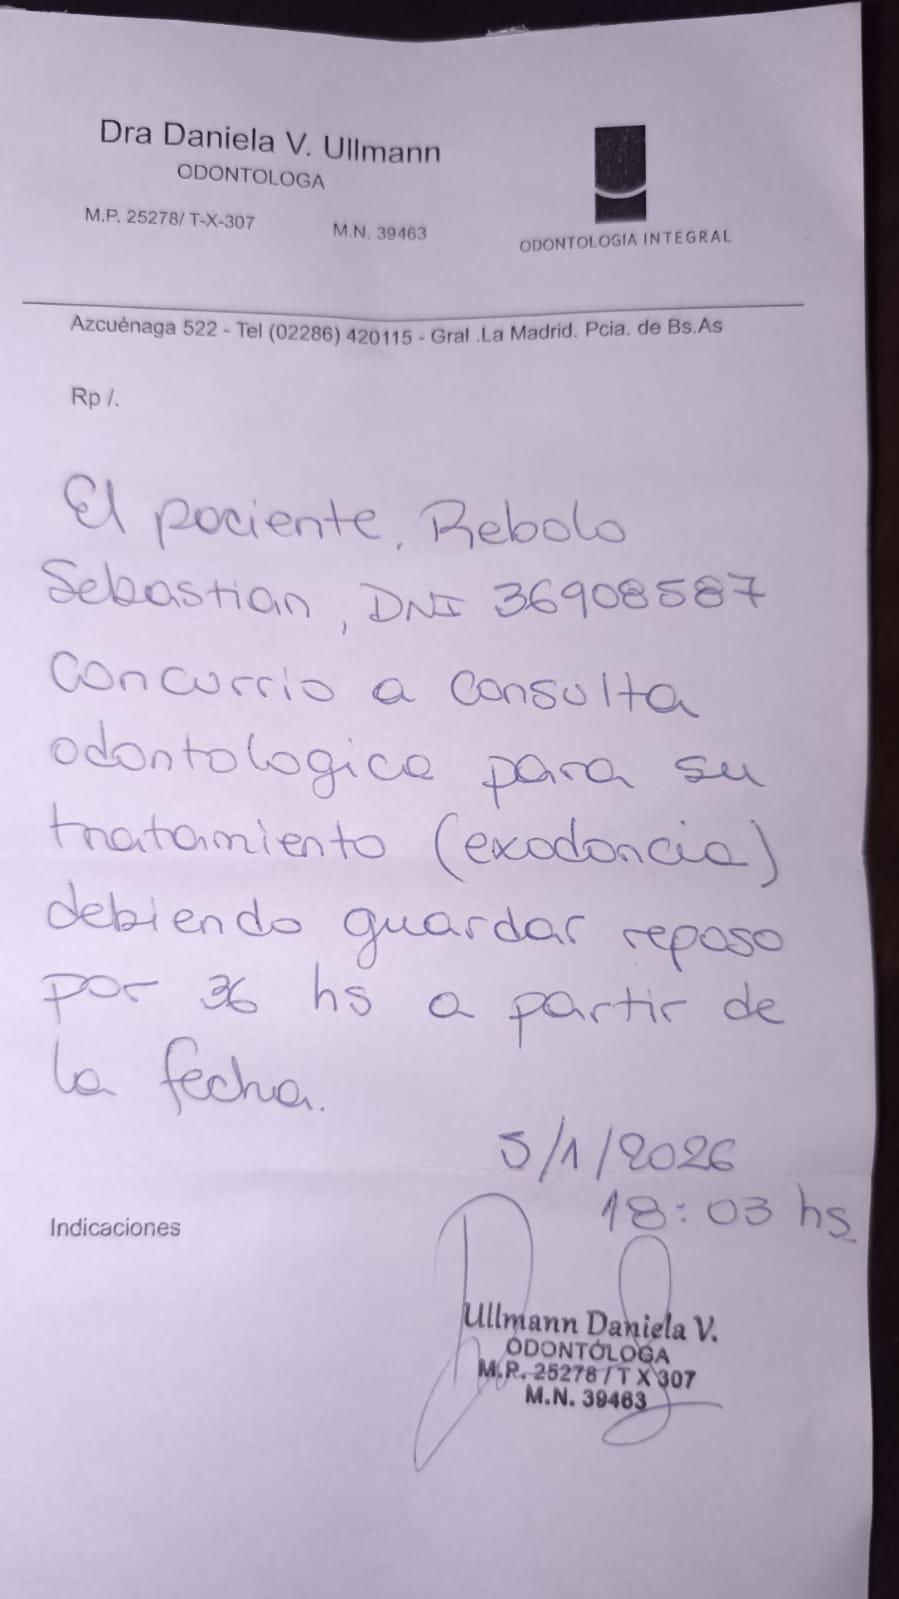 Dra Daniela V. Ullmann
ODONTOLOGA
M.P. 25278/ T-X-307 M.N. 39463
ODONTOLOGIA INTEGRAL
Azcuénaga 522 - Tel (02286) 420115 - Gral .La Madrid. Pcia. de Bs.As
Rp /.
El paciente, Rebolo
Sebastian, DNI 36908587
concurrio a consulta
odontologica para su
tratamiento (exodoncia)
debiendo guardar reposo
por 36 hs a partir de
la fecha.
5/1/2026
18:03 hs
Indicaciones
Ullmann Daniela V.
ODONTÓLOGA
M.P. 25278 / T X 307
M.N. 39463